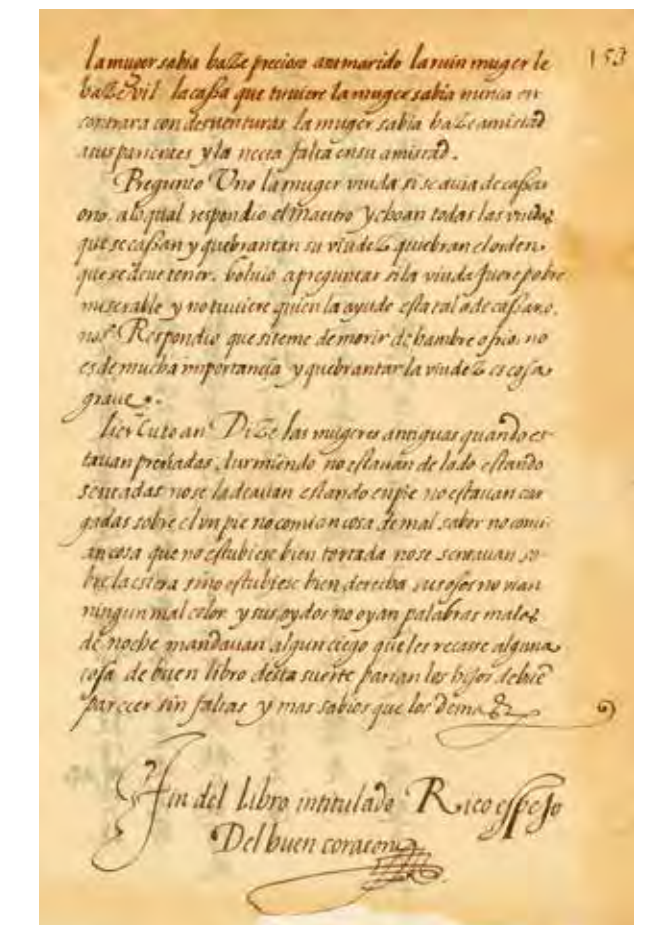 la muger sabia haze precioso a su marido la ruin muger le
haze vil. la cassa que tuuiere la muger sabia nunca en
contrara con desuenturas la muger sabia haze amistad
a sus parientes y la necia falta en su amistad.
Pregunto Uno la muger viuda si se auia de cassar
o no. a lo qual respondio el Maestro Ychoan todas las viudas
que se cassan y quebrantan su viudez quiebran el orden
que se deue tener. boluio a preguntar si la viuda fuere pobre
miserable y no tuuiere quien la ayude esta tal a de cassar o.
no? Respondio que si teme de morir de hambre o frio. no
es de mucha importancia y quebrantar la viudez es cosa
graue.
Dize las mugeres antiguas quando es-
tauan preñadas, durmiendo no estauan de lado estando
sentadas no se ladeauan estando en pie no estauan car
gadas sobre el vn pie no comian cosa de mal sabor no comi-
an cosa que no estubiese bien cortada no se sentauan so-
bre la estera sino estubiese bien derecha, sus ojos no vian
ningun mal color y sus oydos no oyan palabras malas
de noche mandauan algun ciego que les recasse alguna
cosa de buen libro desta suerte parian los hijos de bue
parecer sin faltas y mas sabios que los demas
Fin del libro intitulado Rico espejo
Del buen coraçon
153